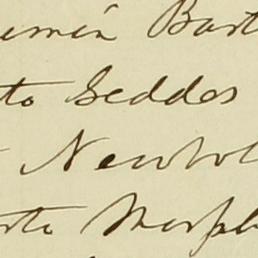 emén Bart
to Geddes
Newhol
rto Morph